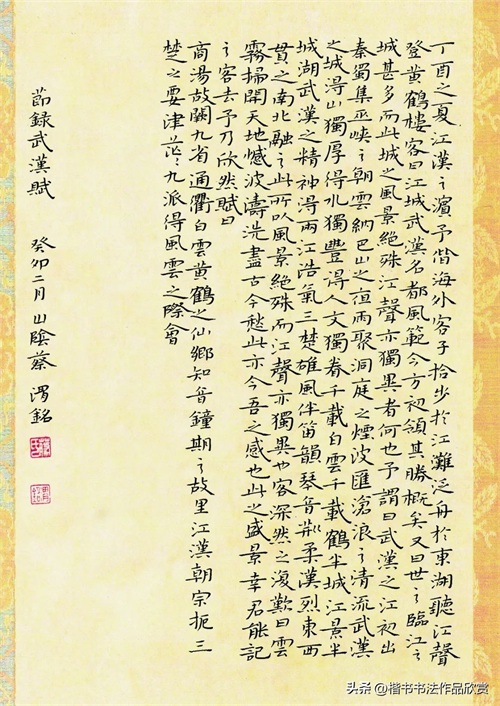 丁酉之夏江漢之濱予偕海外客子拾步於江灘泛舟於東湖聽江聲
登黃鶴樓客曰江城武漢名都風範今方初領其勝概矣又曰世之臨江之
城甚多而此城之風景絕殊江聲亦獨異者何也予謂曰武漢之江初出
秦蜀集巫峽之朝雲納巴山之夜雨聚洞庭之煙波匯滄浪之清流武漢
之城得山獨厚得水獨豐得人文獨眷千載白雲千載鶴半城江景半
城湖武漢之精神得兩江浩氣三楚雄風伴笛韻琴音荊柔漢烈東西
貫之南北融之此所以風景絕殊而江聲亦獨異也客深然之復歎曰雲
霧掃開天地憾波濤洗盡古今愁此亦今吾之感也此之盛景幸君能記
之客去予乃欣然賦曰
商湯故闕九省通衢白雲黃鶴之仙鄉知音鐘期之故里江漢朝宗扼三
楚之要津茫茫九派得風雲之際會
節錄武漢賦 癸卯二月山陰蔡渭銘
头条@楷书书法作品欣赏